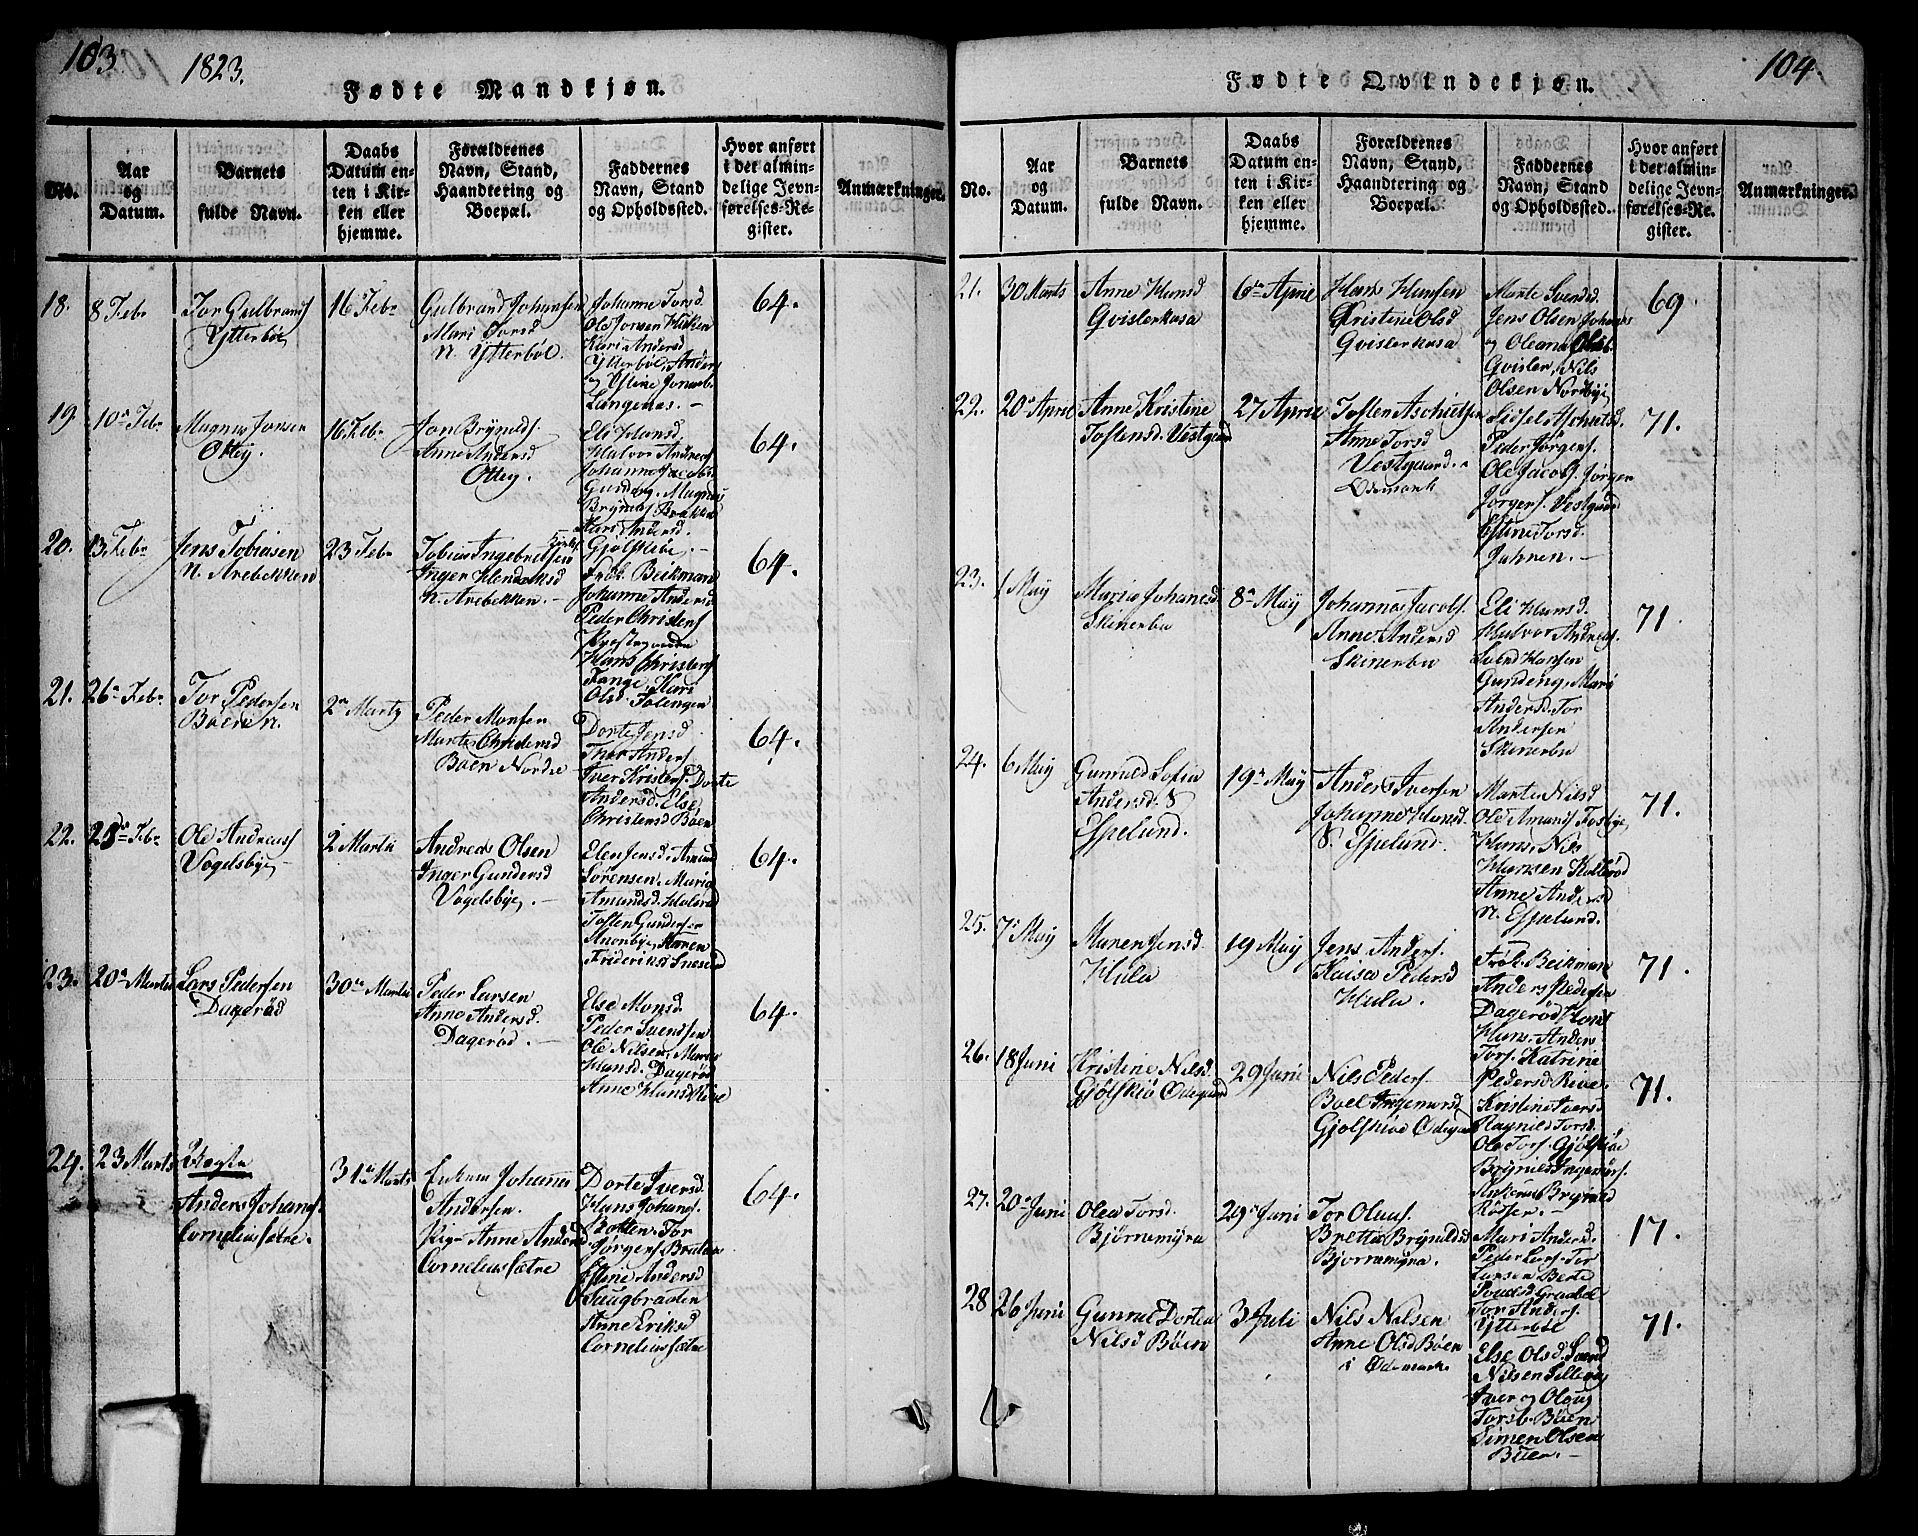 103
1823.
Fødte Mandkjøn.
No.
Aar
og
Datum.
Barnets
fulde Navn.
Daabs
Datum en-
ten i Kir-
ken eller
hjemme.
Forældrenes
Navn, Stand,
Haandtering og
Boepæl.
Faddernes
Navn, Stand
og Opholdssted.
Hvor anført
i det almin-
delige Jevn-
førelses-Re-
gister.
Anmærkninger.
18.
8 Febr
Tor Gulbrands
Ytterbøl
16 Febr
Gulbrand Johansen
Mari Torsd
n. Ytterbøl.
Johanne Torsd.
Ole Jonsen
Kari Andersd
Ytterbøl, Anders
og
Langenæs.
64.
19.
10 Febr
Magnus Jonsen
Ottey
16 Febr
Jon Brynilds.
Anne Andersd
Ottey.
Eli Hansd.
Halvor Andreas
Johannes Jacobs
Gundeng, Magnus
Brynilds Brække
Kari Andersd.
Gjølskiøe.
64.
20.
13 Febr
Jens Tobiasen
n. Arebekken
23 Febr
Tobias Ingebretsen
Inger Hendriksd
n. Arebekken.
Frøk. Beikman
Johanne Andersd
Peder Christens
Hans Christens
Tange, Kari
Olsd.
64.
21.
26 Febr
Tor Pedersen
Boen n.
2 Marts
Peder Monsen
Marte Christensd
Boen Nordre
Dorte Jensd.
Thor Anders
Iver Kristens. Dorte
Andersd. Else
Christensd Boen
64.
22.
Febr
Ole Andreas
Vogelsbye
2 Marts
Andreas Olsen
Inger Gundersd
Vogelsbye.
Elen Jensd. Amund
Sørensen, Maria
Amundsd.
Tosten Gundersen
Karen
Frideriksd
64.
23.
20 Marts
Lars Pedersen
Dagerød
30 Marts
Peder Larsen
Anne Andersd.
Dagerød.
Else Monsd.
Peder Svendsen
Ole Nilsen, Marte
Hansd. Dagerød
Anne Hansd Rive
64.
24.
23 Marts
Uægte
Anders Johans.
Corneliussætre.
31 Marts
Johannes
Andersen.
Pig. Anne Andersd
Corneliussætre
Dorte Iversd.
Hans Johans.
Tor
Jørgens Braten
Andersd
Anne Eriksd
Corneliussætre
64.
104.
Fødte Qvindekjøn.
No.
Aar
og
Datum.
Barnets
fulde Navn.
Daabs
Datum en-
ten i Kir-
ken eller
hjemme.
Forældrenes
Navn, Stand,
Haandtering og
Boepæl.
Faddernes
Navn, Stand
og Opholdssted.
Hvor anført
i det almin-
delige Jevn-
førelses-Re-
gister.
Anmærkninger.
21.
30 Marts
Anne Hansd
Gvislerkasa
6 April
Hans Hansen
Kristine Olsd
Gvislerkasa
Marte Svendsd.
Jens Olsen Johanes
og Oleana Olsd.
Gvisler, Nils
Olsen Nordbye
69
22.
20 April
Anne Kristine
Tostensd. Vestgaard
27 April
Tosten Aschielsen
Anne Torsd
Vestgaard.
Ødemark
Sidsel Aschielsd.
Peder Jørgens.
Ole Jacobs. Jørgen
Jørgens. Vestgaard
Torsd.
Jahren.
71.
23.
1 May
Maria Johansd.
Skinerbu
8 May
Johannes Jacobs.
Anne Andersd
Skinerbu
Eli Hansd.
Halvor Andreas.
Svend Hansen
Gundeng, Mari
Andersd. Tor
Andersen
Skinerbu
71.
24.
6 May
Gunild Sofia
Andersd. S
Espelund.
19 May
Anders Iversen
Johanne Hansd.
S. Espelund.
Marte Nilsd
Ole Amunds Fosbye
Hans, Nils
Hansen Kollerød
Anne Andersd
N. Espelund.
71.
25.
7 May
Maren Jensd.
Hula
19 May
Jens Anders.
Kaisa Pedersd
Hula.
Frøk. Beikman
Anders Pedersen
Dagerød
Hans, Anders
Tors. Katrine
Pedersd Rive.
71.
26.
18 Juni
Kristine Nilsd.
Gjølskiø Ødegaard
29 Juni
Nils Peders.
Boel Ingemarsd
Gjølskiøe Ødegaard
Kristine Iversd
Ragnild Torsd.
Ole Tors. Gjølskiøe
Brynild Ingemars.
Brynild
Røsser.
71.
27.
20 Juni
Olea Torsd.
Bjørnemyra
29 Juni
Tor Olaus.
Bretta Brynildsd
Bjørnemyra.
Mari Andersd.
Peder Lars. Tor
Larsen Berte
Tor Anders.
Ytterbøl
17.
28
26 Juni
Gunild Dortea
Nilsd Bøen
3 Juli
Nils Nilsen
Anne Olsd Bøen
i Ødemark
Else Olsd. Svend
Nilsen
Iver og Olaus
Torsb. Bøen
Simen Olsen
Bøen.
71.